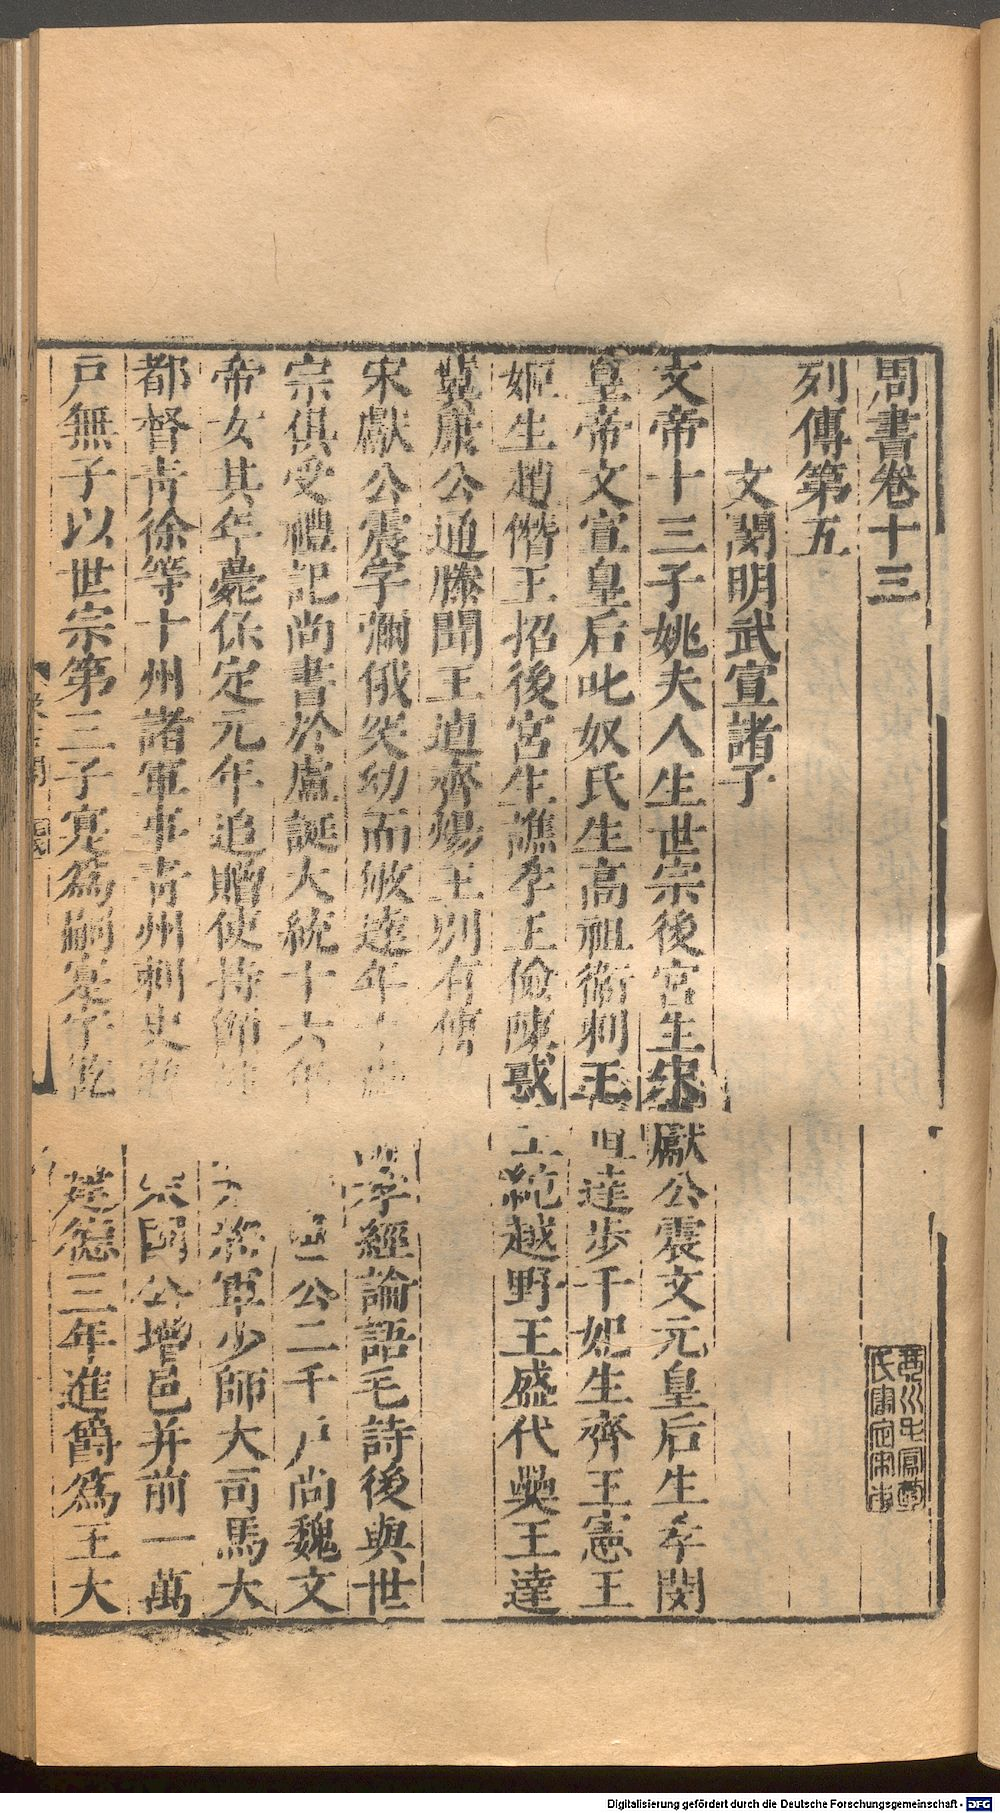 周書卷十三
列傳第五
文閔明武宣諸子
文帝十三子姚夫人生世宗後宮生宋獻公震文元皇后生孝閔
皇帝文宣皇后叱奴氏生高祖衞剌王直達步干妃生齊王憲王
姬生趙僭王招後宮生譙孝王儉陳惑王純越野王盛代奰王達
冀康公通滕聞王逌齊煬王別有傳
宋獻公震字彌俄突幼而敏達年十歲誦孝經論語毛詩後與世
宗俱受禮記尚書於盧誕大統十六年封 公二千戶尚魏文
帝女其年薨保定元年追贈使持節 大將軍少師大司馬大
都督青徐等十州諸軍事青州刺史 宋國公增邑并前一萬
戶無子以世宗第三子寔爲嗣寔字乾 建德三年進爵爲王大
Digitalisierung gefördert durch die Deutsche Forschungsgemeinschaft - DFG